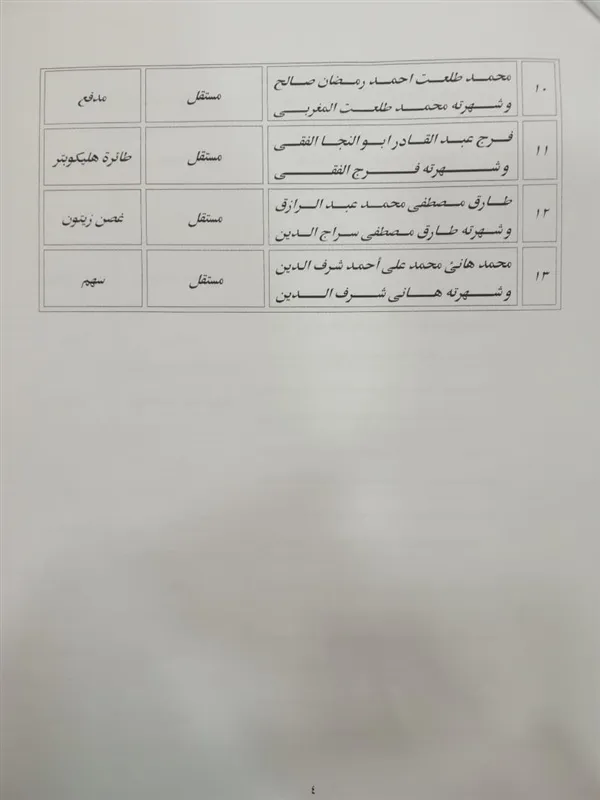 ١٠ محمد طلعت احمد رمضان صالح مستقل مدفع
و شهرته محمد طلعت المغربى
١١ فرج عبد القادر ابو النجا الفقى مستقل طائرة هليكوبتر
و شهرته فرج الفقى
١٢ طارق مصطفى محمد عبد الرازق مستقل غصن زيتون
و شهرته طارق مصطفى سراج الدين
١٣ محمد هانئ محمد على أحمد شرف الدين مستقل سهم
و شهرته هانى شرف الدين
٤